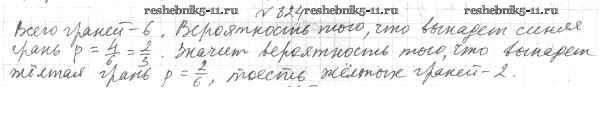 reshebnik5-11.ru № 824 reshebnik5-11.ru
Всего граней-6. Вероятность того, что выпадет синяя
грань p = 4/6 = 2/3. Значит вероятность того, что выпадет
жёлтая грань p = 2/6, тоесть жёлтых граней-2.
reshebnik5-11.ru reshebnik5-11.ru